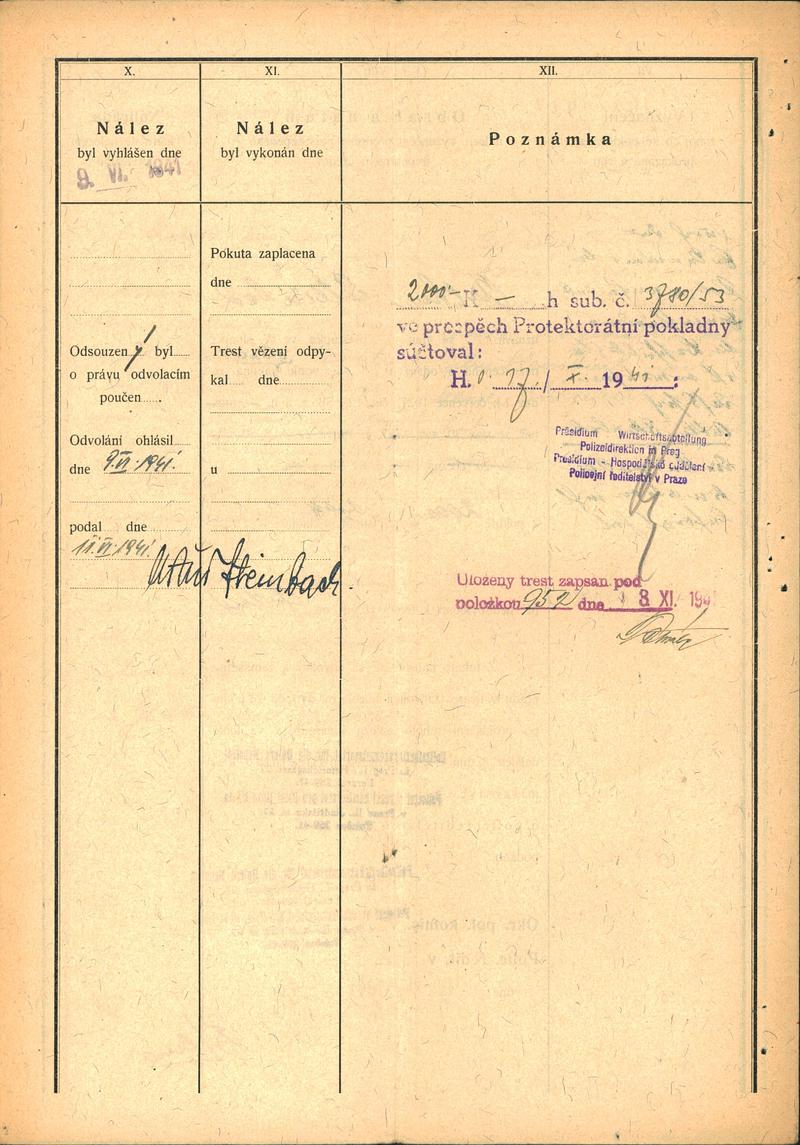 X.
Nález
byl vyhlášen dne
9. VI. 1941
Odsouzen ý byl
o právu odvolacím
poučen
Odvolání ohlásil
dne 9.VI.1941.
podal dne
11.VI.1941.
XI.
Nález
byl vykonán dne
Pokuta zaplacena
dne
Trest vězení odpy-
kal dne
u
Steinbach.
XII.
Poznámka
2000·– K — h sub. č. 3780/53
ve prospěch Protektorátní pokladny
súčtoval:
H. 17./X. 1941 :
Präsidium Wirtschaftsabteilung
Polizeidirektion in Prag
Presidium - Hospodářské oddělení
Policejní ředitelství v Praze
Uložený trest zapsán pod
položkou 952 dne 8 XI. 194